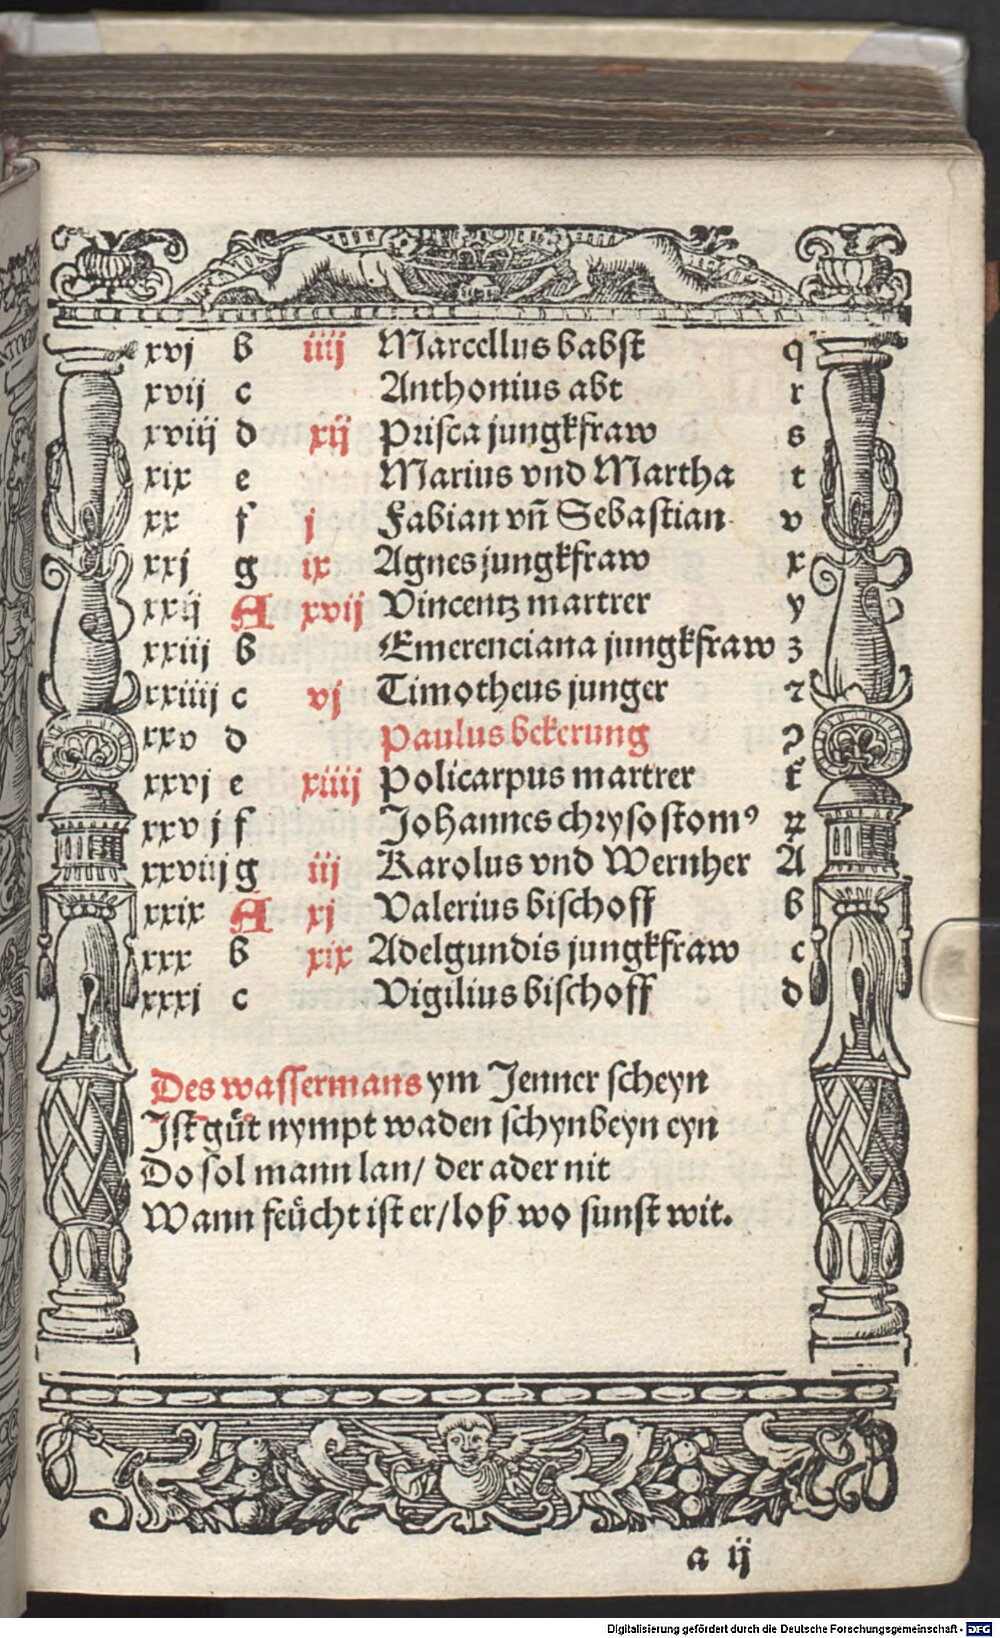 xvj b iiij Marcellus babst q
xvij c Anthonius abt r
xviij d xij Prisca jungkfraw s
xix e Marius vnd Martha t
xx f j Fabian vn̄ Sebastian v
xxj g ix Agnes jungkfraw x
xxij A xvij Vincentz martrer y
xxiij b Emerenciana jungkfraw z
xxiiij c vj Timotheus junger
xxv d Paulus bekerung
xxvj e xiiij Policarpus martrer
xxvij f Johannes chrysostomꝰ
xxviij g iij Karolus vnd Wernher A
xxix A xj Valerius bischoff b
xxx b xix Adelgundis jungkfraw c
xxxj c Vigilius bischoff d
Des wassermans ym Jenner scheyn
Ist guͦt nympt waden schynbeyn eyn
Do sol mann lan/ der ader nit
Wann feücht ist er/ loß wo sunst wit.
a ij
Digitalisierung gefördert durch die Deutsche Forschungsgemeinschaft - DFG